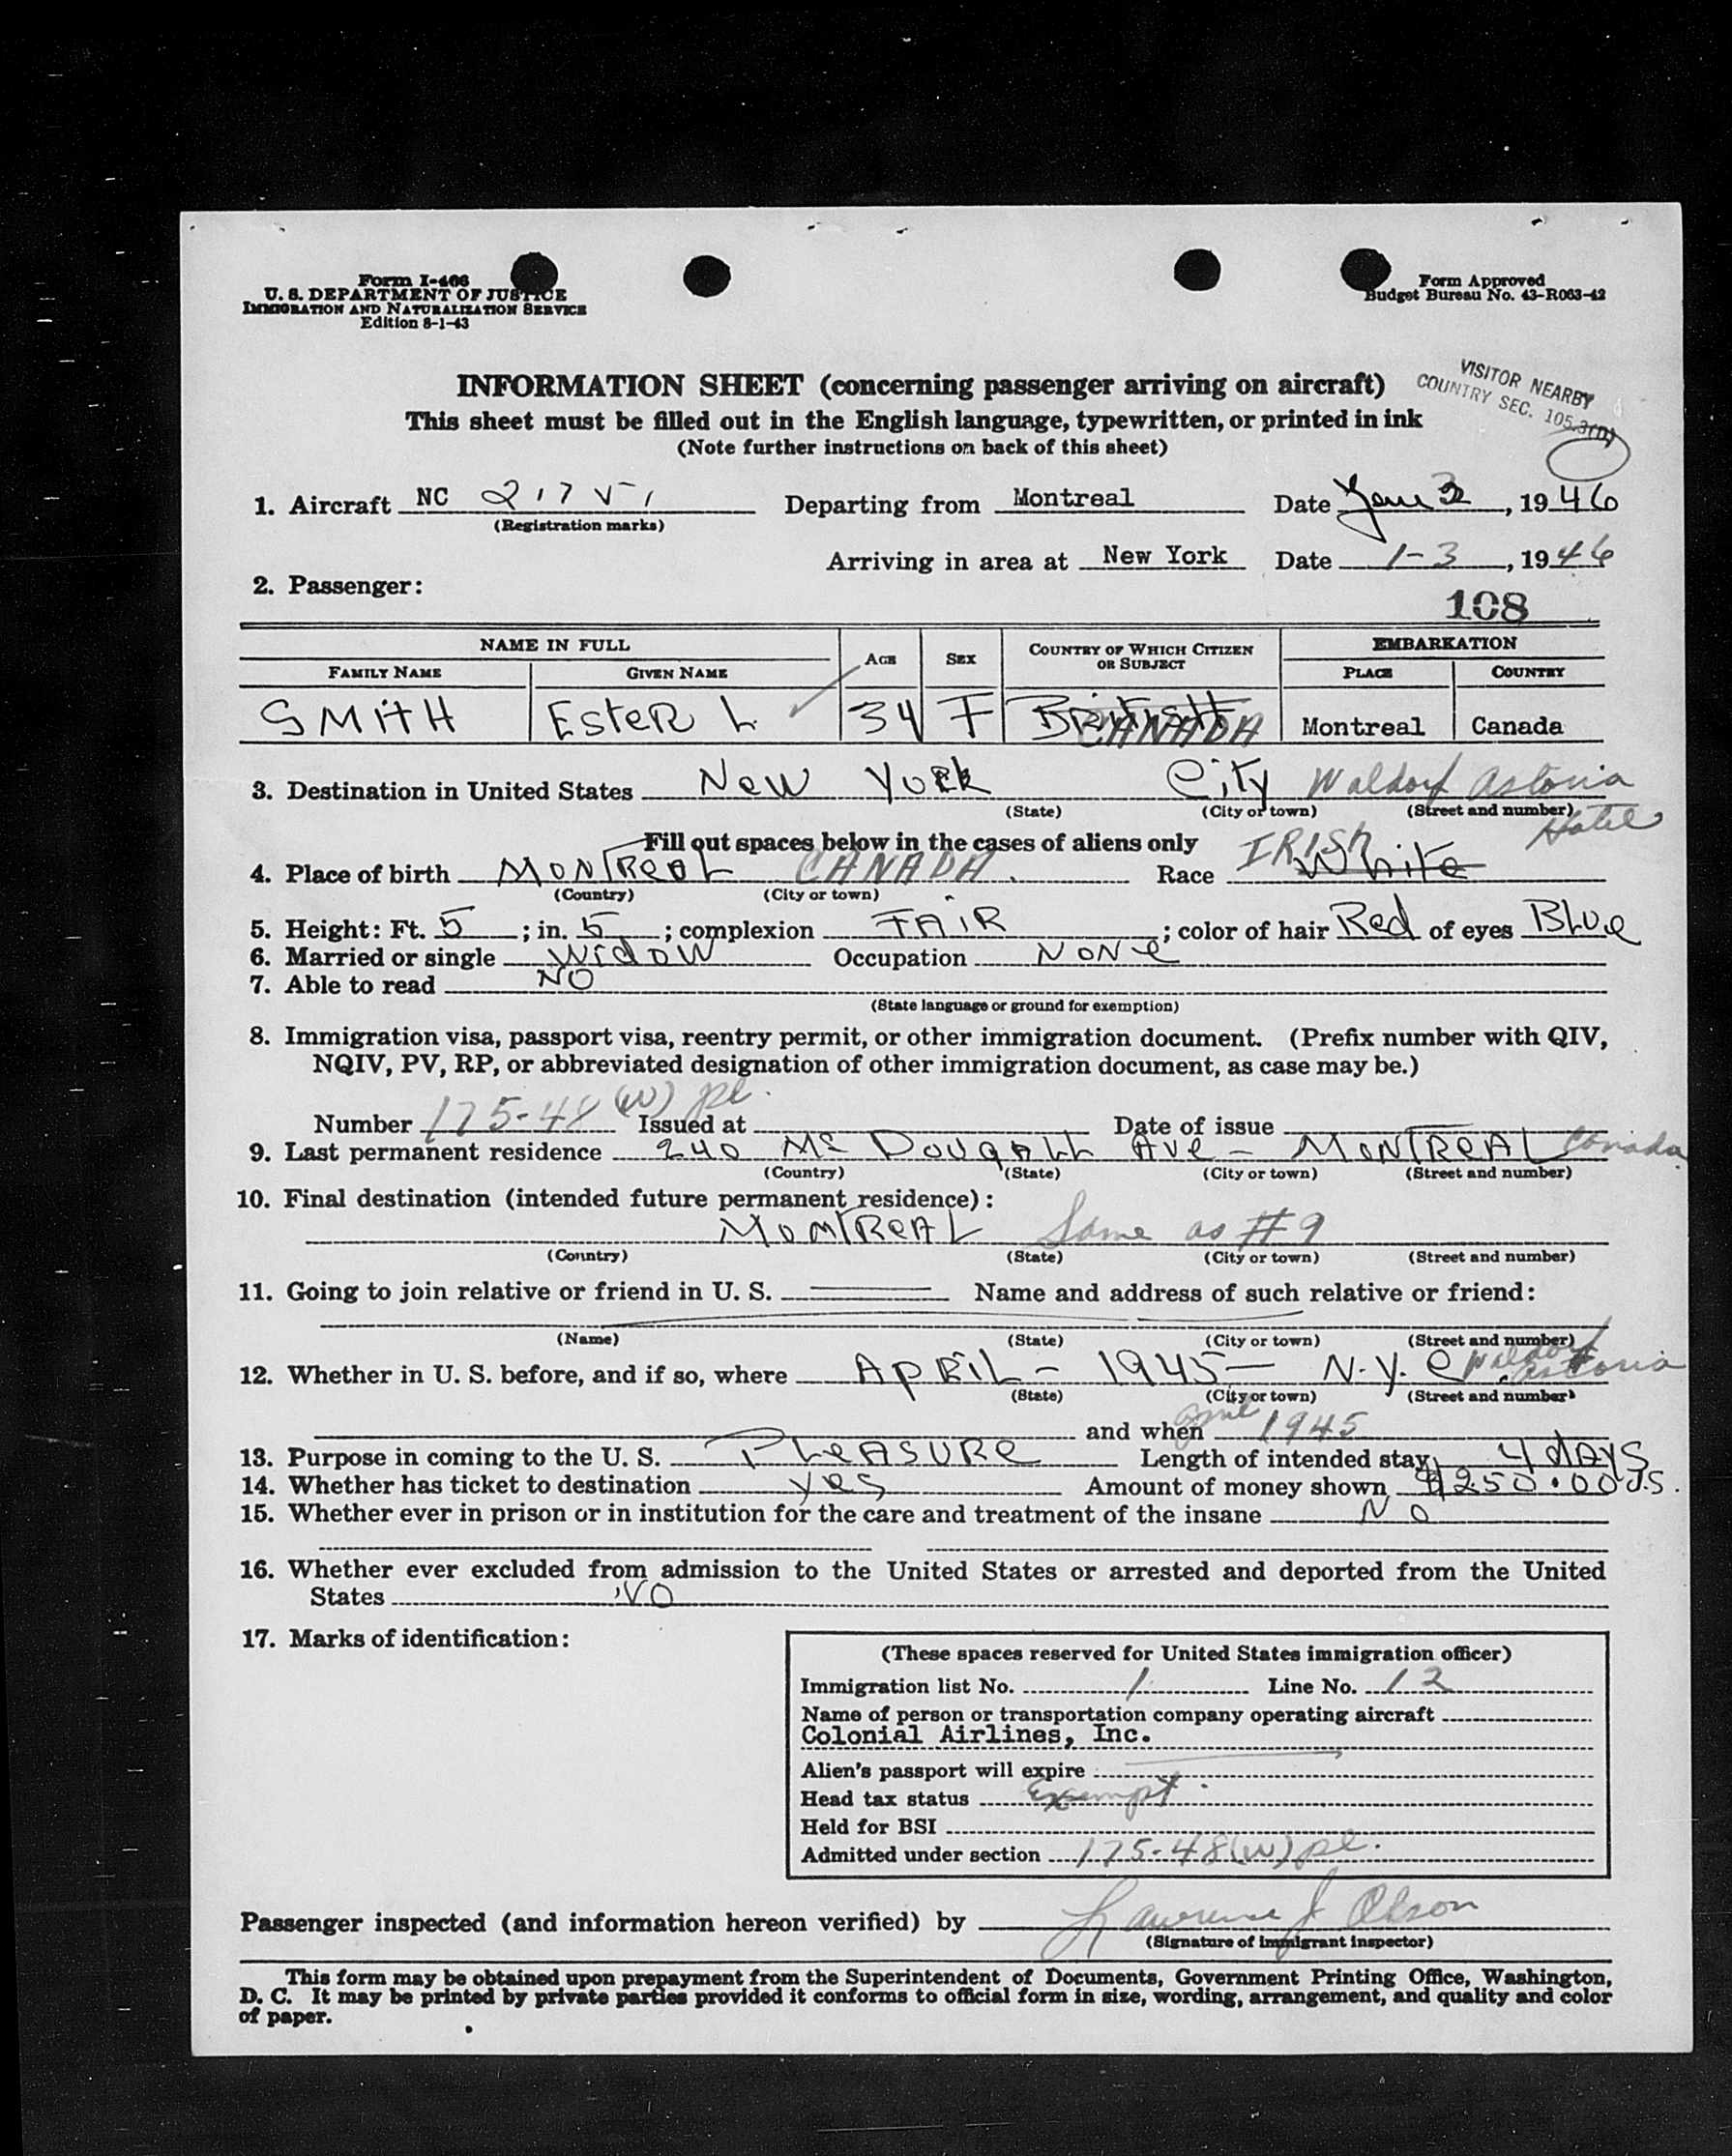 Form I-466
U. S. DEPARTMENT OF JUSTICE
IMMIGRATION AND NATURALIZATION SERVICE
Edition 8-1-43
Form Approved
Budget Bureau No. 43-R063-42
INFORMATION SHEET (concerning passenger arriving on aircraft)
VISITOR NEARBY
COUNTRY SEC. 105.3(D)
This sheet must be filled out in the English language, typewritten, or printed in ink
(Note further instructions on back of this sheet)
1. Aircraft NC 21751 Departing from Montreal Date Jan 3, 1946
(Registration marks)
Arriving in area at New York Date 1-3, 1946
2. Passenger:
108
NAME IN FULL AGE SEX COUNTRY OF WHICH CITIZEN OR SUBJECT EMBARKATION
FAMILY NAME GIVEN NAME PLACE COUNTRY
SMITH ESTER L 34 F BRITISH CANADA Montreal Canada
3. Destination in United States New York City Waldorf Astoria
(State) (City or town) (Street and number) Hotel
Fill out spaces below in the cases of aliens only
4. Place of birth MONTREAL CANADA. Race IRISH White
(Country) (City or town)
5. Height: Ft. 5; in. 5; complexion FAIR; color of hair Red of eyes BLUE
6. Married or single Widow Occupation NONE
7. Able to read NO
(State language or ground for exemption)
8. Immigration visa, passport visa, reentry permit, or other immigration document. (Prefix number with QIV,
NQIV, PV, RP, or abbreviated designation of other immigration document, as case may be.)
Number 175-48 (W) pl. Issued at Date of issue
9. Last permanent residence 240 Mc DOUGALL AVE - MONTREAL Canada
(Country) (State) (City or town) (Street and number)
10. Final destination (intended future permanent residence):
MONTREAL Same as #9
(Country) (State) (City or town) (Street and number)
11. Going to join relative or friend in U. S. Name and address of such relative or friend:
(Name) (State) (City or town) (Street and number)
12. Whether in U. S. before, and if so, where APRIL - 1945 - N.Y.C. Waldorf Astoria
(State) (City or town) (Street and number)
and when April 1945
13. Purpose in coming to the U. S. PLEASURE Length of intended stay 4 days
14. Whether has ticket to destination yes Amount of money shown $250.00 U.S.
15. Whether ever in prison or in institution for the care and treatment of the insane NO
16. Whether ever excluded from admission to the United States or arrested and deported from the United
States NO
17. Marks of identification:
(These spaces reserved for United States immigration officer)
Immigration list No. 1 Line No. 12
Name of person or transportation company operating aircraft
Colonial Airlines, Inc.
Alien's passport will expire
Head tax status Exempt.
Held for BSI
Admitted under section 175-48(W) pl.
Passenger inspected (and information hereon verified) by Lawrence J Olson
(Signature of immigrant inspector)
This form may be obtained upon prepayment from the Superintendent of Documents, Government Printing Office, Washington,
D. C. It may be printed by private parties provided it conforms to official form in size, wording, arrangement, and quality and color
of paper.